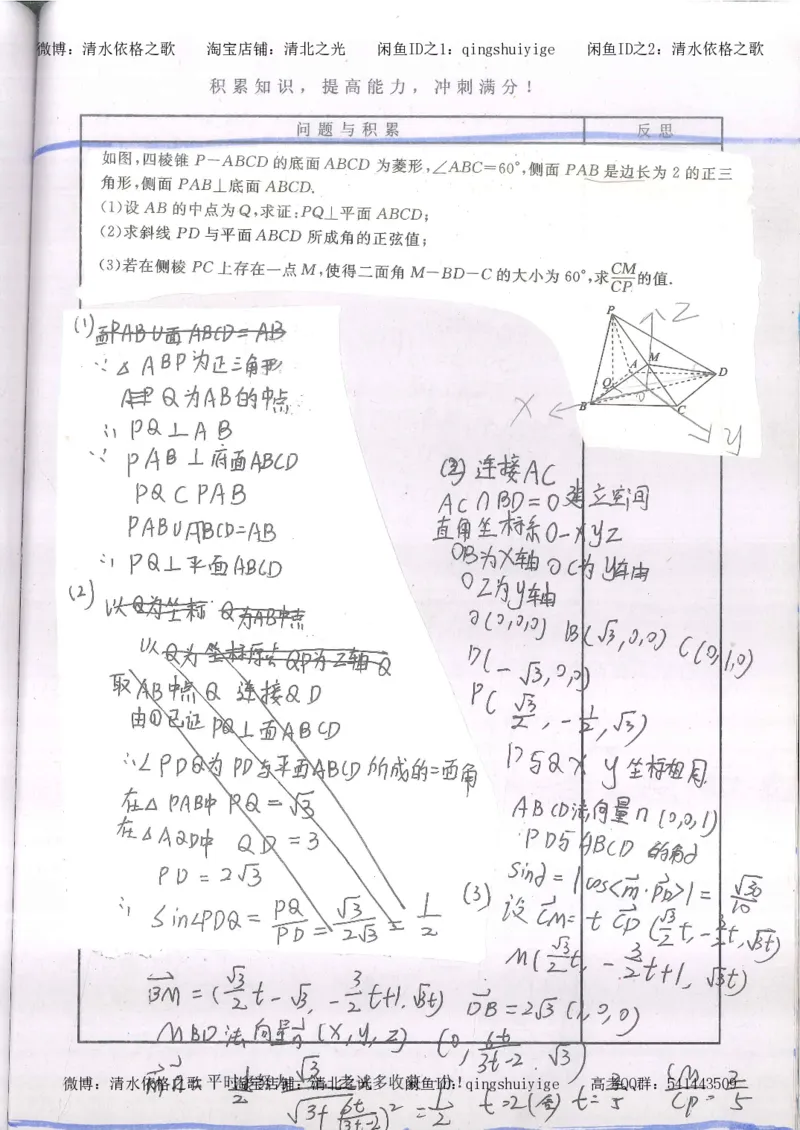 微博：清水依格之歌 淘宝店铺：清北之光 闲鱼ID之1：qingshuiyige 闲鱼ID之2：清水依格之歌
积累知识，提高能力，冲刺满分！
问题与积累 反思
如图,四棱锥 P-ABCD 的底面 ABCD 为菱形,∠ABC=60°,侧面 PAB 是边长为 2 的正三
角形,侧面 PAB⊥底面 ABCD.
(1)设 AB 的中点为 Q,求证:PQ⊥平面 ABCD;
(2)求斜线 PD 与平面 ABCD 所成角的正弦值;
(3)若在侧棱 PC 上存在一点 M,使得二面角 M-BD-C 的大小为 60°,求CM/CP的值.
P
Z
A
M
D
Q
O
B
C
X
y
(1) 面PAB∪面ABCD=AB
∵△ABP为正三角形
Q为AB的中点
∴PQ⊥AB
∵PAB⊥底面ABCD
PQ⊂PAB
PAB∪ABCD=AB
∴PQ⊥平面ABCD
(2) 以Q为坐标 Q为AB中点
以Q为坐标原点QP为Z轴 Q
取AB中点Q 连接QD
由①已证PQ⊥面ABCD
∴∠PDQ为PD与平面ABCD所成的二面角
在△PAB中 PQ=√3
在△AQD中 QD=3
PD=2√3
∴ Sin∠PDQ=PQ/PD=√3/2√3=1/2
(2) 连接AC
AC∩BD=O 建立空间
直角坐标系O-xyz
OB为X轴 OC为y轴
OZ为y轴
O(0,0,0) B(√3,0,0) C(0,1,0)
D(-√3,0,0)
P(√3/2,-1/2,√3)
P与Q X y坐标相同
ABCD法向量n(0,0,1)
PD与ABCD的角α
Sinα=|cos<m·PD>|=√30/10
(3) 设CM=tCP(√3/2t,-3/2t,√3t)
M(√3/2t,-3/2t+1,√3t)
BM=(√3/2t-√3,-3/2t+1,√3t) DB=2√3(1,0,0)
MBD法向量n(x,y,z) (0,6t/3t-2,√3)
1/2 √3/√3+(6t/3t-2)²=1/2 t=2(舍) t=2/5 CM/CP=2/5
微博：清水依格之歌 淘宝店铺：清北之光 闲鱼ID：qingshuiyige 高考QQ群：541443509